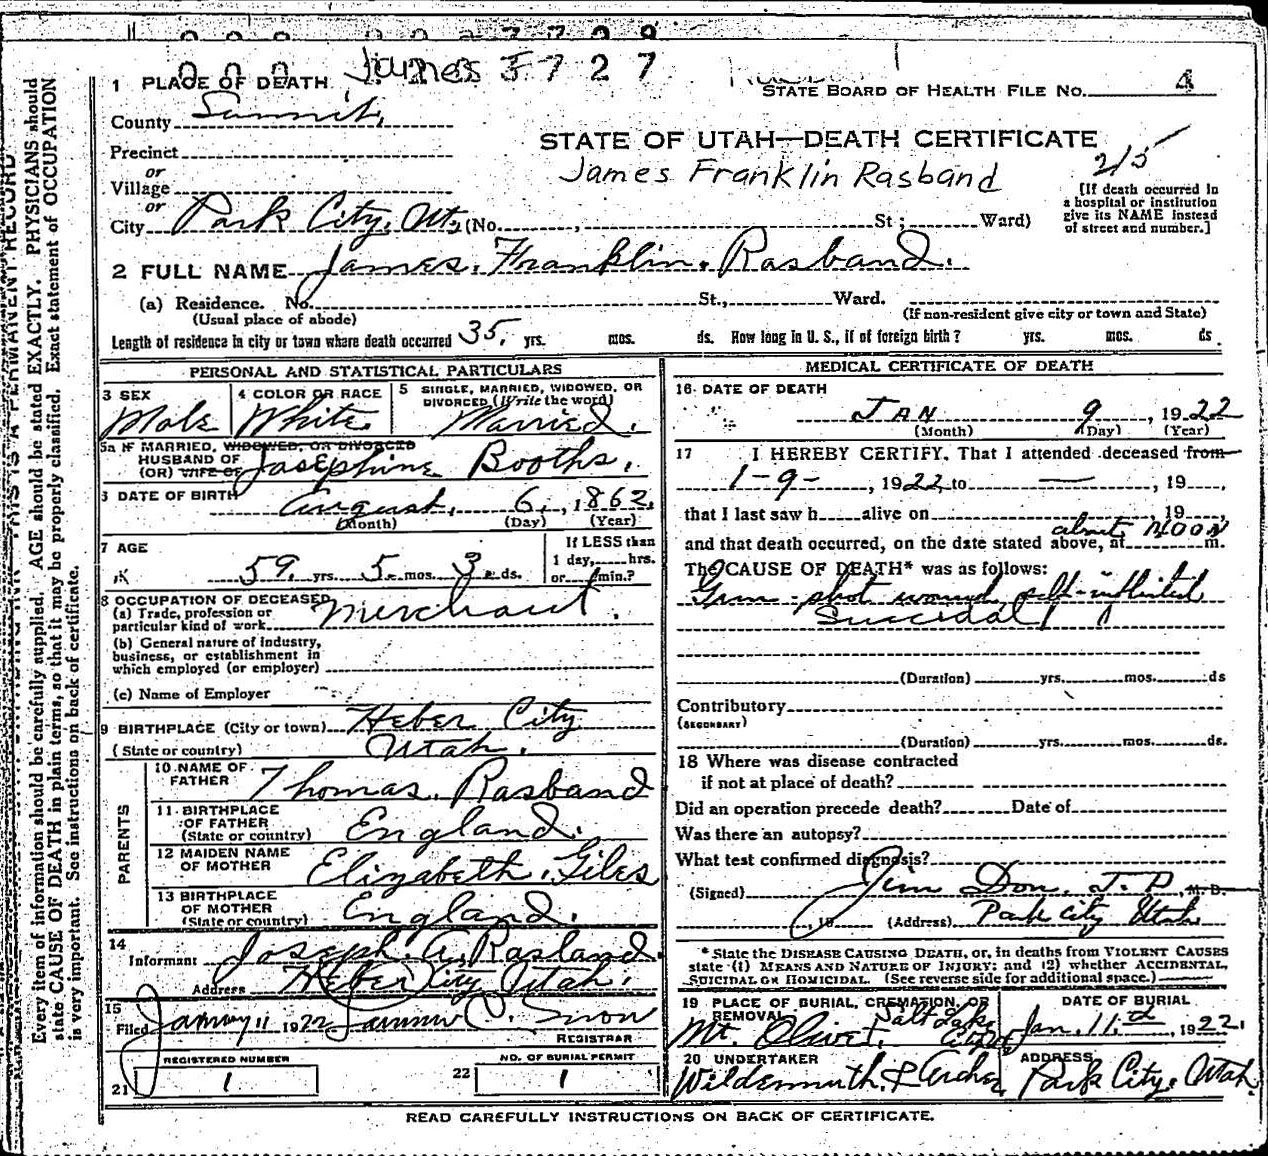 James F 7 2 7
1 PLACE OF DEATH
STATE BOARD OF HEALTH FILE NO. 4
County Summit,
STATE OF UTAH—DEATH CERTIFICATE
Precinct
James Franklin Rasband
215
or
Village
or
[If death occurred in
a hospital or institution
give its NAME instead
of street and number.]
City Park City, Ut, (No. , St; Ward)
2 FULL NAME James. Franklin. Rasband.
(a) Residence. No. St., Ward.
(Usual place of abode)
(If non-resident give city or town and State)
Length of residence in city or town where death occurred 35. yrs. mos. ds. How long in U. S., if of foreign birth? yrs. mos. ds.
PERSONAL AND STATISTICAL PARTICULARS
3 SEX
Male
4 COLOR OR RACE
White
5 SINGLE, MARRIED, WIDOWED, OR
DIVORCED (Write the word)
Married.
5a IF MARRIED, WIDOWED, OR DIVORCED
HUSBAND OF
(OR) WIFE OF Josephine Booths.
6 DATE OF BIRTH
August, 6, 1862.
(Month) (Day) (Year)
7 AGE
59. yrs. 5. mos. 3. ds.
If LESS than
1 day, hrs.
or min.?
8 OCCUPATION OF DECEASED
(a) Trade, profession or
particular kind of work Merchant.
(b) General nature of industry,
business, or establishment in
which employed (or employer)
(c) Name of Employer
9 BIRTHPLACE (City or town) Heber City
(State or country) Utah.
PARENTS
10 NAME OF
FATHER Thomas. Rasband
11 BIRTHPLACE
OF FATHER
(State or country) England.
12 MAIDEN NAME
OF MOTHER Elizabeth. Giles
13 BIRTHPLACE
OF MOTHER
(State or country) England.
14
Informant Joseph. A. Rasband.
Address Heber City Utah.
15
Filed January 11 1922 C. Snow
REGISTRAR
REGISTERED NUMBER
21 1
NO. OF BURIAL PERMIT
22 1
MEDICAL CERTIFICATE OF DEATH
16 DATE OF DEATH
JAN 9, 1922
(Month) (Day) (Year)
17 I HEREBY CERTIFY, That I attended deceased from
1-9-, 1922 to —, 19
that I last saw h alive on , 19
and that death occurred, on the date stated above, at about NOON m.
The CAUSE OF DEATH* was as follows:
Gun-shot wound, self-inflicted
Suicidal
(Duration) yrs. mos. ds
Contributory
(SECONDARY)
(Duration) yrs. mos. ds.
18 Where was disease contracted
if not at place of death?
Did an operation precede death? Date of
Was there an autopsy?
What test confirmed diagnosis?
(Signed) Jim Don, J. P. M. D.
, 19 (Address) Park City Utah
* State the DISEASE CAUSING DEATH, or, in deaths from VIOLENT CAUSES
state (1) MEANS AND NATURE OF INJURY; and (2) whether ACCIDENTAL,
SUICIDAL OR HOMICIDAL. (See reverse side for additional space.)
19 PLACE OF BURIAL, CREMATION, OR
REMOVAL
Mt. Olivet. Salt Lake City
DATE OF BURIAL
Jan. 11th, 1922.
20 UNDERTAKER
Wildemuth. & Archer
ADDRESS
Park City, Utah
READ CAREFULLY INSTRUCTIONS ON BACK OF CERTIFICATE.
Every item of information should be carefully supplied. AGE should be stated EXACTLY. PHYSICIANS should
state CAUSE OF DEATH in plain terms, so that it may be properly classified. Exact statement of OCCUPATION
is very important. See instructions on back of certificate.